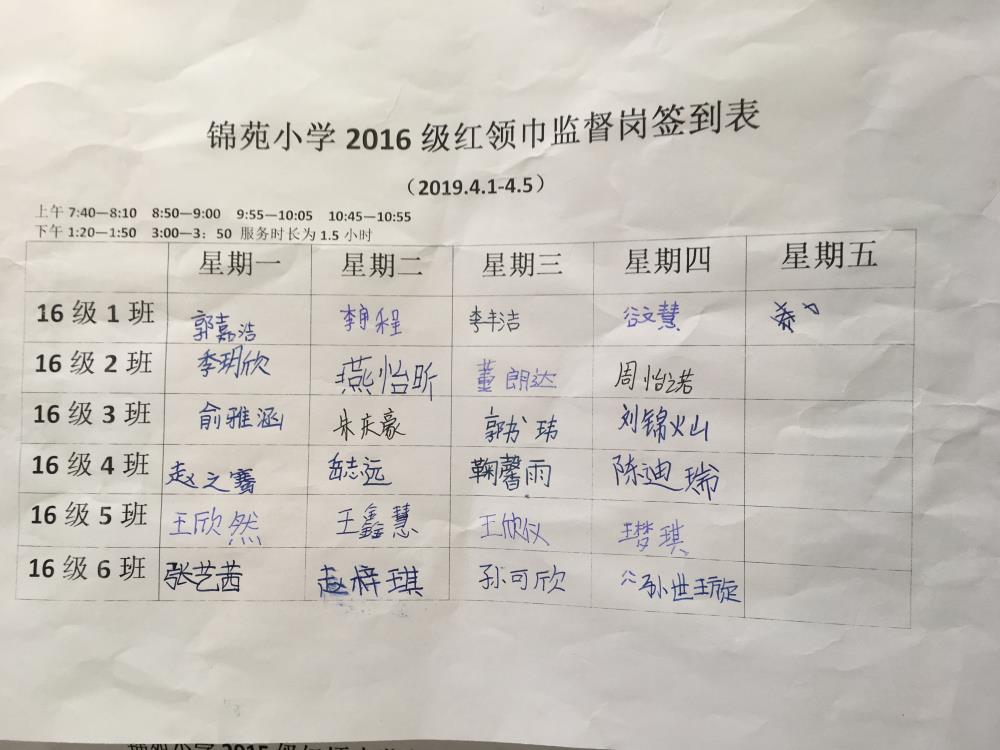 锦苑小学 2016 级红领巾监督岗签到表
（2019.4.1-4.5）
上午 7:40—8:10 8:50—9:00 9:55—10:05 10:45—10:55
下午 1:20—1:50 3:00—3：50 服务时长为 1.5 小时
星期一 星期二 星期三 星期四 星期五
16 级 1 班 郭嘉浩 程 李丰洁 谷文慧
16 级 2 班 季玥欣 燕怡昕 董朗达 周怡诺
16 级 3 班 俞雅涵 朱庆豪 郭 玮 刘锦灿
16 级 4 班 赵之骞 岳志远 鞠馨雨 陈迪瑞
16 级 5 班 王欣然 王鑫慧 王欣仪 王梦琪
16 级 6 班 张艺茜 赵梓琪 孙可欣 公孙世琔